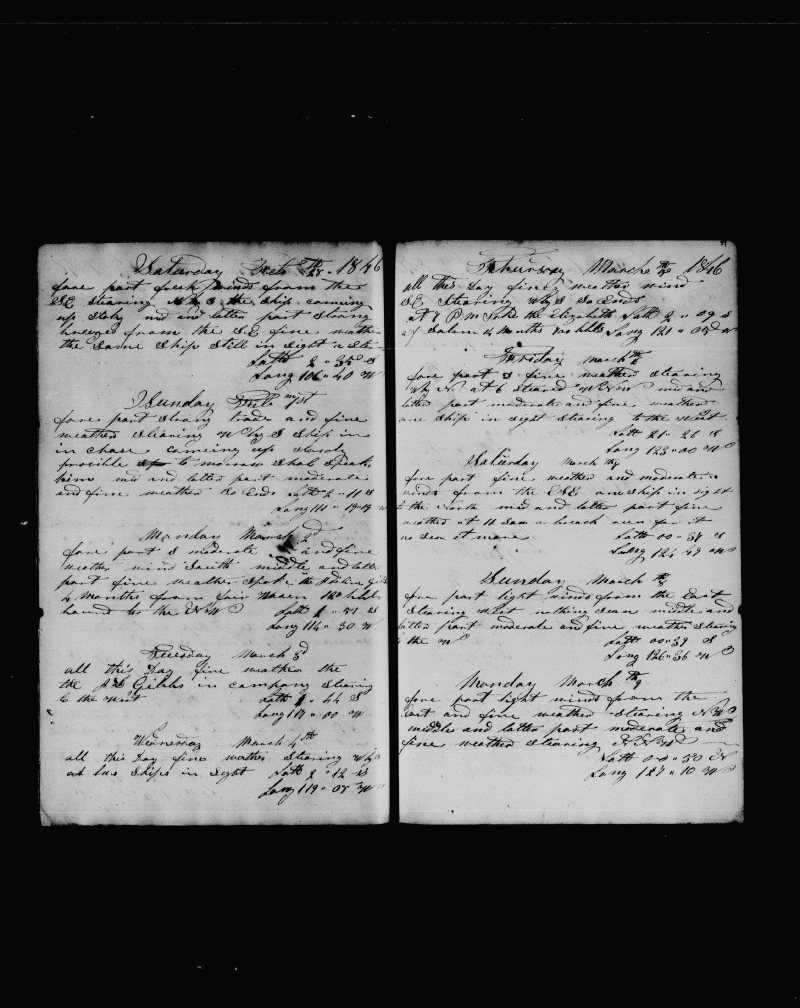 Saturday Feb 28th 1846
fore part fresh winds from the
SE Stearing W by S the Ship coming
up Sloly mid and latter part Strong
breezes from the SE fine weather
the same Ship Still in Sight a Stern
Latt 2 " 35 S
Long 106 " 40 W
Sunday 1st
fore part Strong trades and fine
weather Stearing W by S Ship in
in chase comeing up slowly
possible to morrow Shal Speak
him mid and latter part moderate
and fine weather So Ends Latt 2 " 11 S
Long 111 " 17 W
Monday March 2d
fore part moderate and fine
weather wind South middle and latter
part fine weather Spoke the
4 Months from fair haven 120 bbls
bound to the NW Latt 1 " 51 S
Long 114 " 30 W
Tuesday March 3d
all this Day fine weather the
the Gibbs in company Stearing
to the West Latt 1 " 44 S
Long 117 " 00 W
Wednesday March 4th
all this Day fine wather Stearing W by S
at two Ships in Sight Latt 2 " 12 S
Long 119 " 07 W
Thursday March 5th 1846
all this Day fine weather wind
SE Stearing W by S So Ends
at 7 P M Spoke the Elizabeth Latt 2 " 09 S
of Salem 4 Months bbls Long 121 " 05 W
Friday March 6th
fore part fine weather Stearing
W by N at 6 Steared WNW mid and
latter part moderate and fine weather
one Ship in sight Stearing to the West
Latt 21 " 26 S
Long 123 " 00 W
Saturday March 7th
fore part fine weather and moderate
winds from the ESE one Ship in sight
to the North mid and latter part fine
weather at 11 Saw a breach run for it
no Seen it more Latt 00 " 58 S
Long 124 " 49 W
Sunday March 8th
fore part light winds from the East
Stearing West nothing Seen middle and
latter part moderate and fine weather Stearing
to the W Latt 00 " 39 S
Long 126 " 36 W
Monday March 9th
fore part light winds from the
East and fine weather Stearing NW
middle and latter part moderate and
fine weather Stearing NNW
Latt 00 " 50 N
Long 127 " 10 W